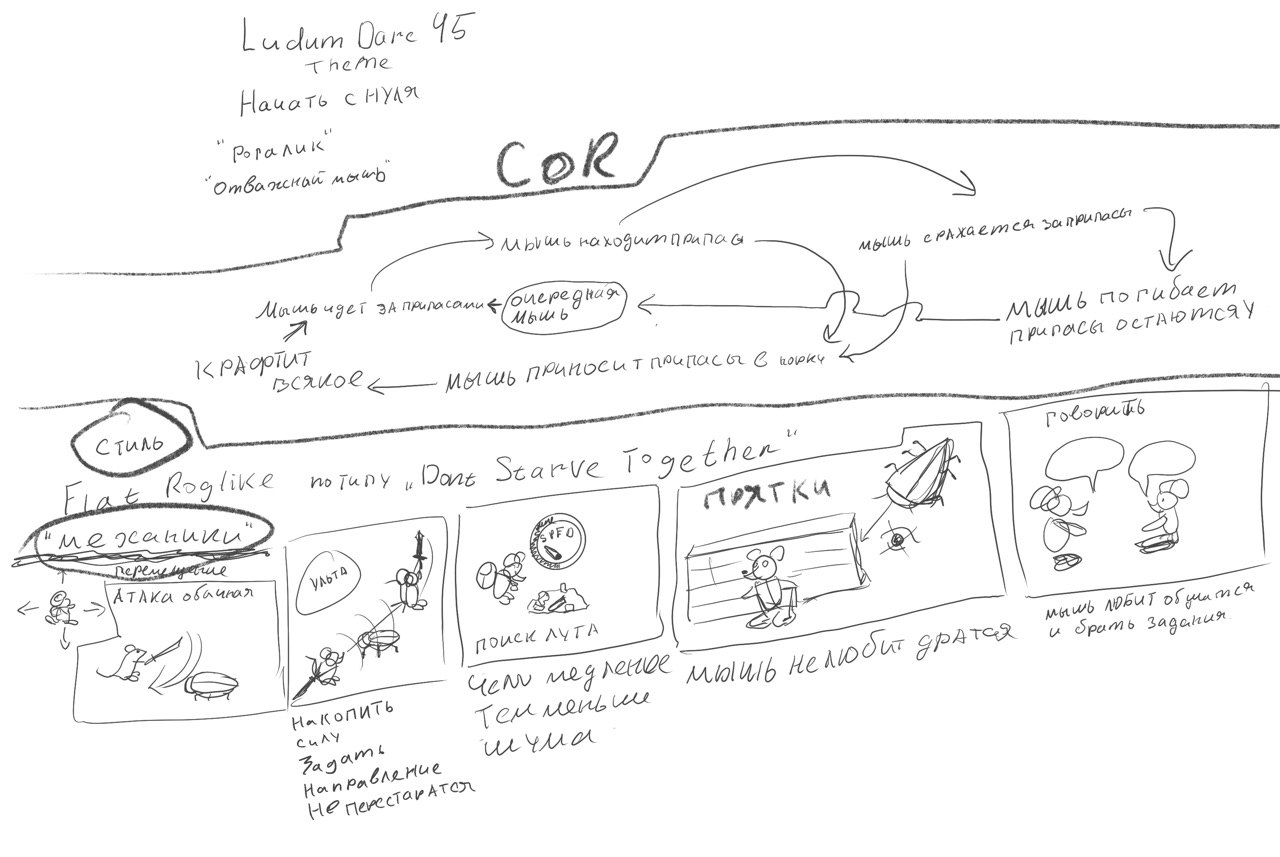 Ludum Dare 45
Theme
Начать с нуля
"Рогалик"
"Отважнай мышь"
COR
Мышь находит припасы
мышь сражается за припасы
Мышь идет за припасами
очередная
мышь
Мышь погибает
припасы остаются
Крафтит
всякое
мышь приносит припасы в норку
Стиль
Flat Roglike по типу „Dont Starve Together"
"механики"
перемещение
Атака обачная
ульта
Накопить
силу
Задать
направление
Не перестаратся
SPEED
поиск лута
Чем медленее
тем меньше
шума
прятки
мышь не любит дратся
говорить
мышь любит общатся
и брать задания